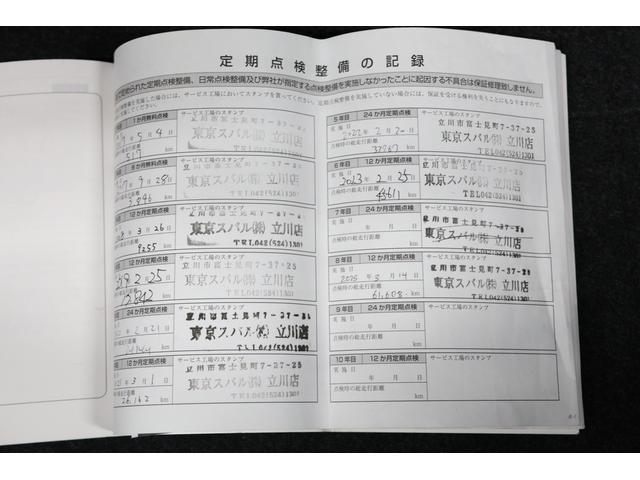 定期点検整備の記録
られた定期点検整備、日常点検整備及び弊社が指定する点検整備を実施しなかったことに起因する不具合は保証修理致しません。
1か月無料点検
サービス工場のスタンプ
5月4日
立川市富士見町7-37-25
東京スバル㈱ 立川店
TEL042(524)1301
か月無料点検
サービス工場のスタンプ
9月28日
立川市富士見町7-37-25
東京スバル㈱ 立川店
TEL042(524)1301
km
12か月定期点検
サービス工場のスタンプ
3月26日
立川市富士見町7-37-25
東京スバル㈱ 立川店
9255
km
TEL042(524)1301
か月定期点検
サービス工場のスタンプ
2月25日
立川市富士見町7-37-25
東京スバル㈱ 立川店
km
TEL042(524)1301
12か月定期点検
サービス工場のスタンプ
2月21日
立川市富士見町7-37-25
東京スバル㈱ 立川店
km
TEL042(524)1301
12か月定期点検
サービス工場のスタンプ
3月1日
立川市富士見町7-37-25
東京スバル㈱ 立川店
26,162
km
TEL042(524)1301
5年目
24か月定期点検
サービス工場のスタンプ
実施日
2022年2月2日
立川市富士見町7-37-25
東京スバル㈱ 立川店
点検時の総走行距離
km
TEL042(524)1301
6年目
12か月定期点検
サービス工場のスタンプ
実施日
2023年2月25日
立川市富士見町7-37-25
東京スバル㈱ 立川店
点検時の総走行距離
km
TEL042(524)1301
7年目
24か月定期点検
サービス工場のスタンプ
実施日
年 月 日
立川市富士見町7-37-25
東京スバル㈱ 立川店
点検時の総走行距離
km
TEL042(524)1301
8年目
12か月定期点検
サービス工場のスタンプ
実施日
2025年3月14日
立川市富士見町7-37-25
東京スバル㈱ 立川店
点検時の総走行距離
61,608
km
TEL042(524)1301
9年目
24か月定期点検
サービス工場のスタンプ
実施日
年 月 日
点検時の総走行距離
km
10年目
12か月定期点検
サービス工場のスタンプ
実施日
年 月 日
点検時の総走行距離
km